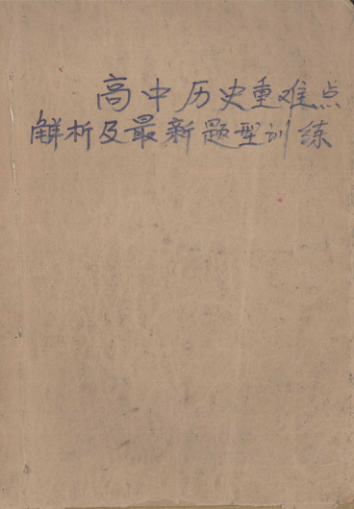 高中历史重难点
解析及最新题型训练